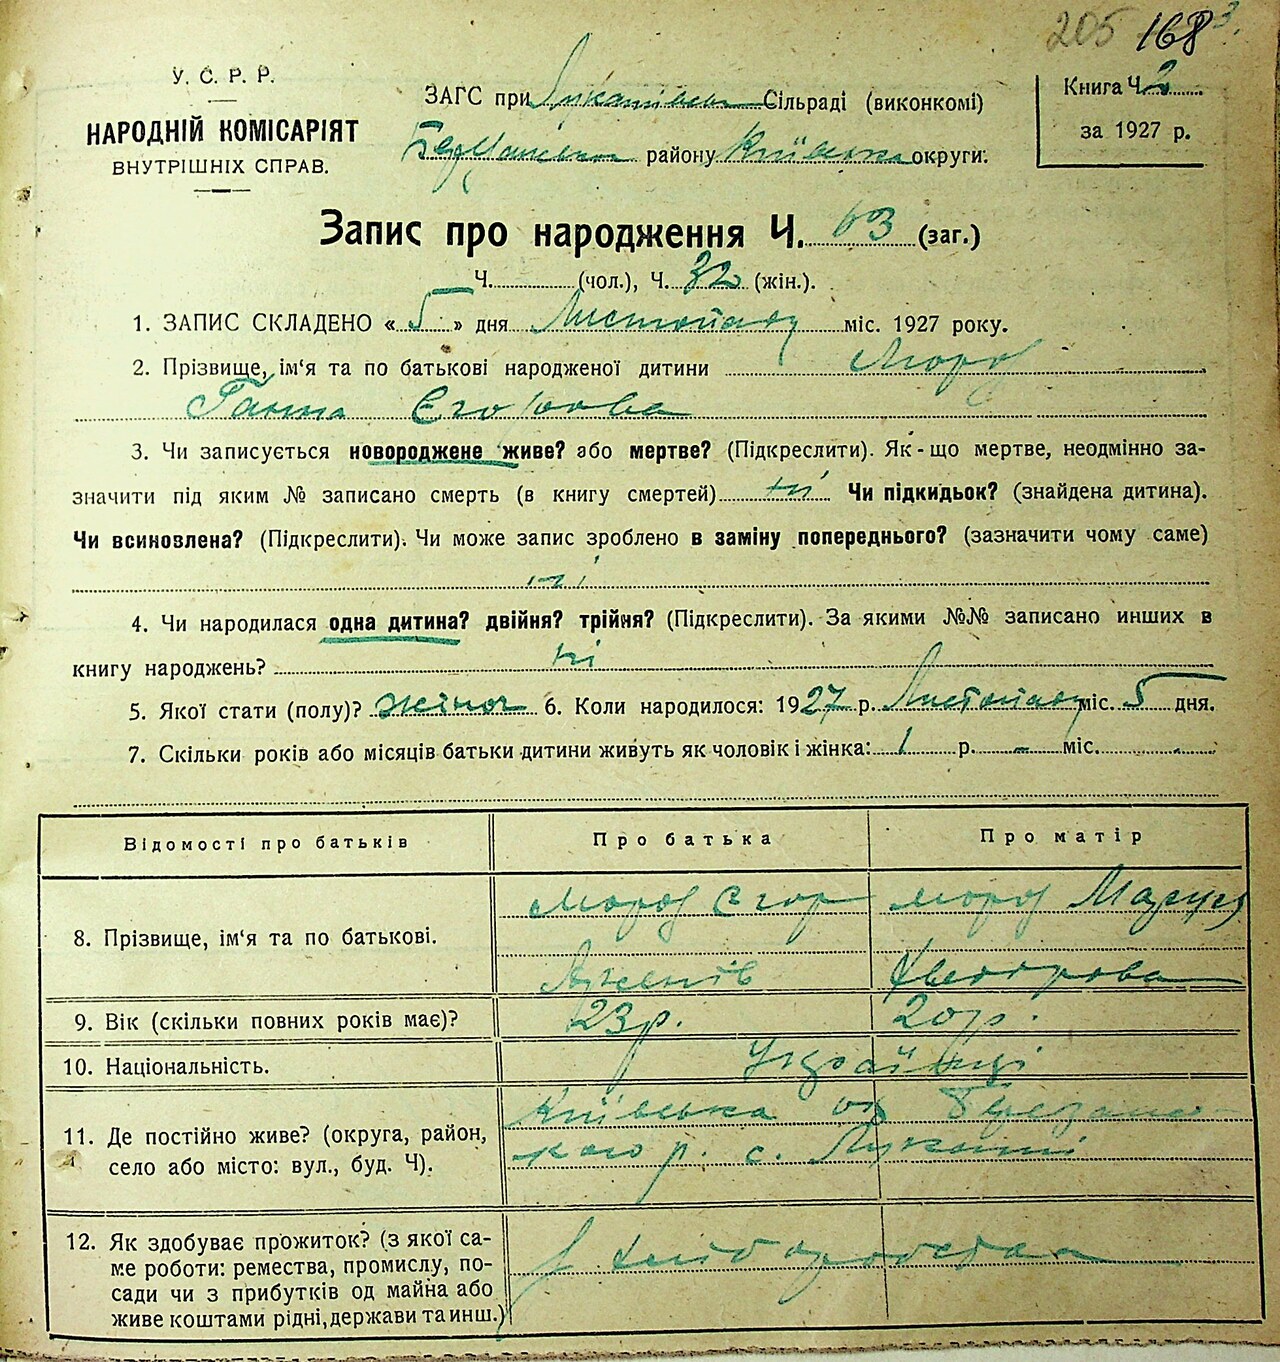 205 168
У. С. Р. Р.
НАРОДНІЙ КОМІСАРІЯТ
ВНУТРІШНІХ СПРАВ.
ЗАГС при Лукашівськ Сільраді (виконкомі)
району Київська округи:
Книга Ч. 2
за 1927 р.
Запис про народження Ч. 63 (заг.)
Ч. (чол.), Ч. 32 (жін.).
1. ЗАПИС СКЛАДЕНО « 5 » дня Листопаду міс. 1927 року.
2. Прізвище, ім'я та по батькові народженої дитини Мороз
Ганна Єгорова
3. Чи записується новороджене живе? або мертве? (Підкреслити). Як-що мертве, неодмінно за-
значити під яким № записано смерть (в книгу смертей) ні Чи підкидьок? (знайдена дитина).
Чи всиновлена? (Підкреслити). Чи може запис зроблено в заміну попереднього? (зазначити чому саме)
ні
4. Чи народилася одна дитина? двійня? трійня? (Підкреслити). За якими №№ записано инших в
книгу народжень? ні
5. Якої стати (полу)? жіноч 6. Коли народилось: 1927 р. Листопаду міс. 5 дня.
7. Скільки років або місяців батьки дитини живуть як чоловік і жінка: 1 р. - міс.
Відомості про батьків Про батька Про матір
8. Прізвище, ім'я та по батькові.
Мороз Єгор Мороз Маруся
Хведорова
9. Вік (скільки повних років має)? 23р. 20р.
10. Національність. Українці
11. Де постійно живе? (округа, район,
село або місто: вул., буд. Ч).
Київська ок Березанс-
кого р. с. Лукаші
12. Як здобуває прожиток? (з якої са-
ме роботи: ремества, промислу, по-
сади чи з прибутків од майна або
живе коштами рідні, держави та инш.)
з хліборобства